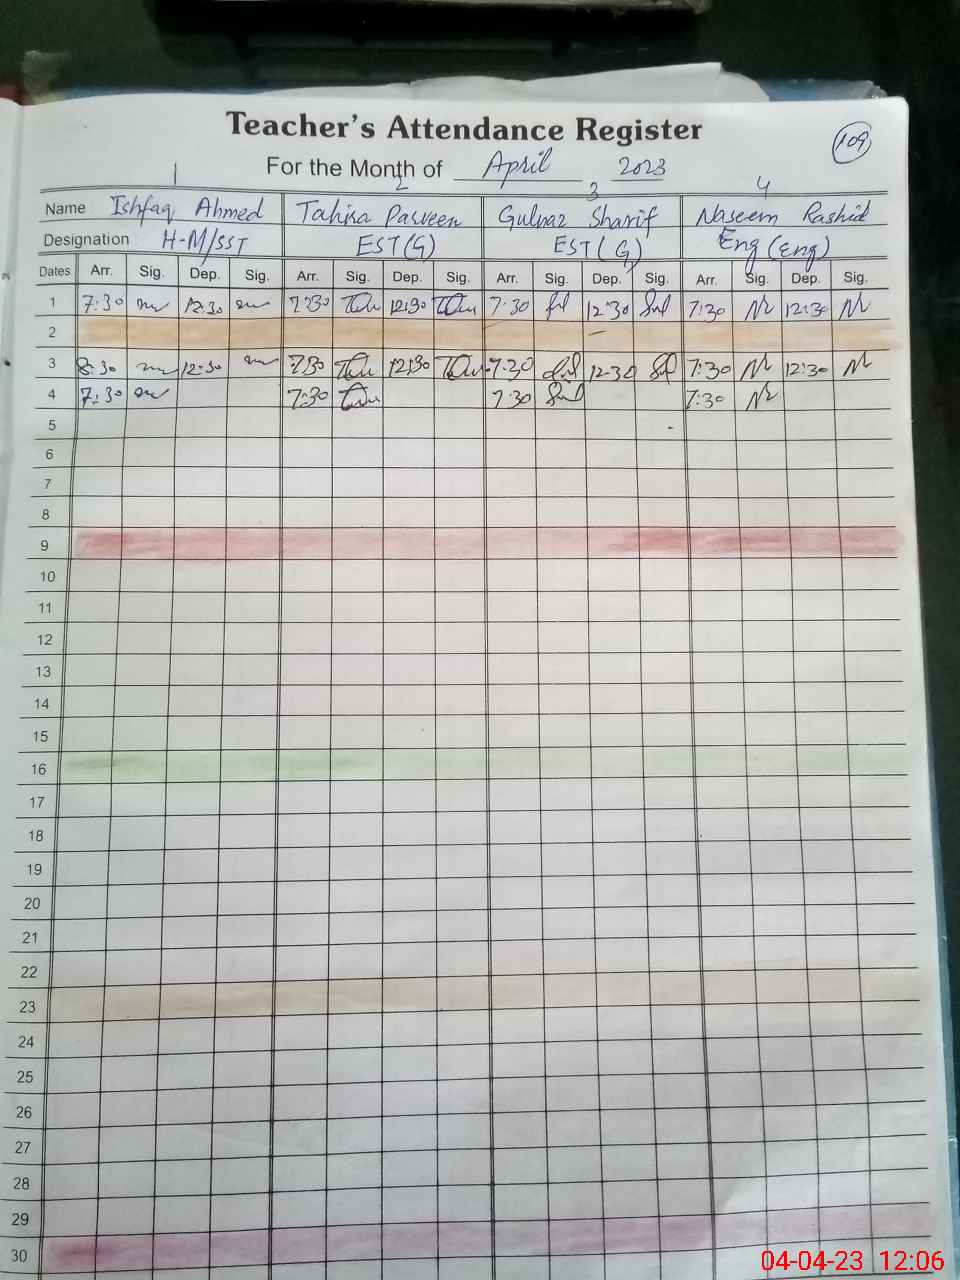 Teacher's Attendance Register
109
For the Month of April 2023
1 2 3 4
Name Ishfaq Ahmed Tahira Parveen Gulnaz Sharif Naseem Rashid
Designation H-M/SST EST(G) EST(G) Eng (Eng)
Dates Arr. Sig. Dep. Sig. Arr. Sig. Dep. Sig. Arr. Sig. Dep. Sig. Arr. Sig. Dep. Sig.
1 7:30 12:30 7:30 12:30 7:30 12:30 7:30 12:30
2 –
3 8:30 12:30 7:30 12:30 7:30 12:30 7:30 12:30
4 7:30 7:30 7:30 7:30
5
6
7
8
9
10
11
12
13
14
15
16
17
18
19
20
21
22
23
24
25
26
27
28
29
30
04-04-23 12:06